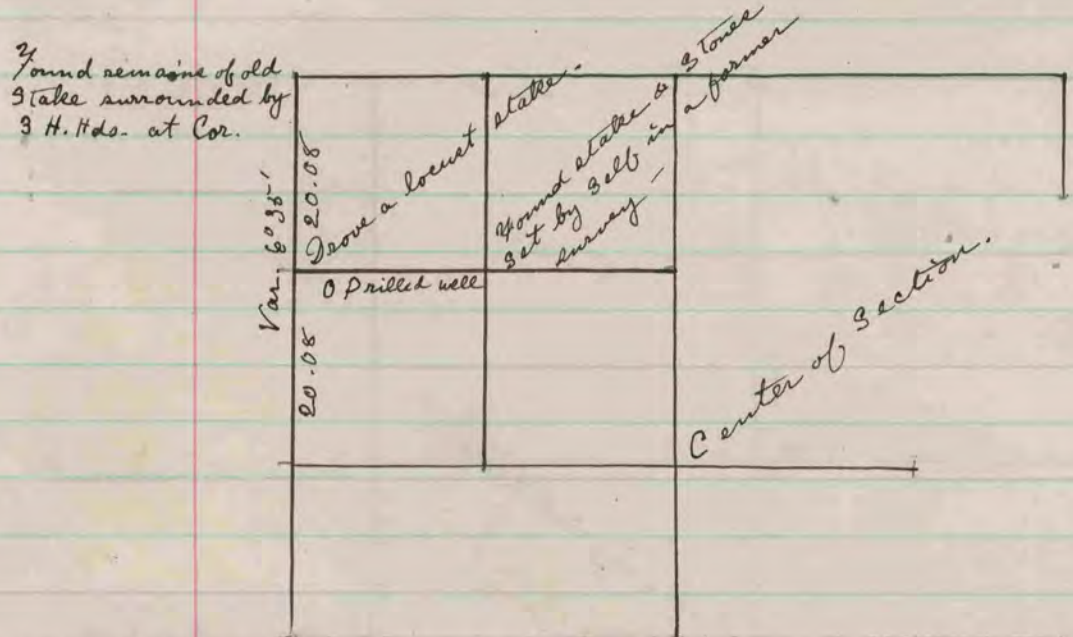 Found remains of old
Stake surrounded by
3 H. Hds. at Cor.
Var. 6° 35'
20.08
Drove a locust stake.
Found stake & Stones
Set by Self in a former
survey
O Drilled well
20.08
Center of Section.